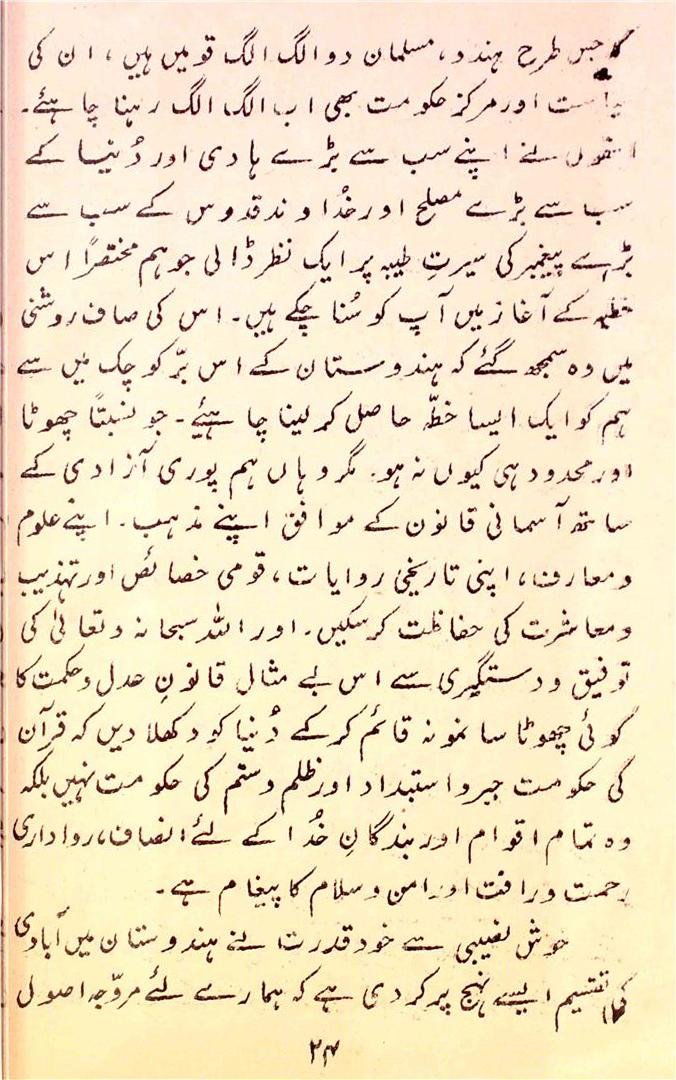 جس طرح ہندو، مسلمان دو الگ الگ قومیں ہیں، ان کی
سیاست اور مرکز حکومت بھی اب الگ الگ رہنا چاہئے۔
انھوں نے اپنے سب سے بڑے ہادی اور دُنیا کے
سب سے بڑے مصلح اور خُداوند قدوس کے سب سے
بڑے پیغمبر کی سیرتِ طیبہ پر ایک نظر ڈالی جو ہم مختصراً اس
خطبہ کے آغاز میں آپ کو سُنا چکے ہیں۔ اس کی صاف روشنی
میں وہ سمجھ گئے کہ ہندوستان کے اس برّ کوچک میں سے
ہم کو ایک ایسا خطّہ حاصل کر لینا چاہئیے۔ جو نسبتاً چھوٹا
اور محدود ہی کیوں نہ ہو۔ مگر وہاں ہم پوری آزادی کے
ساتھ آسمانی قانون کے موافق اپنے مذہب۔ اپنے علوم
و معارف، اپنی تاریخی روایات، قومی خصائص اور تہذیب
و معاشرت کی حفاظت کر سکیں۔ اور اللہ سبحانہ و تعالیٰ کی
توفیق و دستگیری سے اس بے مثال قانونِ عدل و حکمت کا
کوئی چھوٹا سا نمونہ قائم کر کے دُنیا کو دکھلا دیں کہ قرآن
کی حکومت جبر و استبداد اور ظلم و ستم کی حکومت نہیں بلکہ
وہ تمام اقوام اور بندگانِ خُدا کے لئے انصاف، رواداری
رحمت و رافت اور امن و سلام کا پیغام ہے۔
خوش نصیبی سے خود قدرت نے ہندوستان میں آبادی
کی تقسیم ایسے نہج پر کر دی ہے کہ ہمارے لئے مروّجہ اصول
۲۴